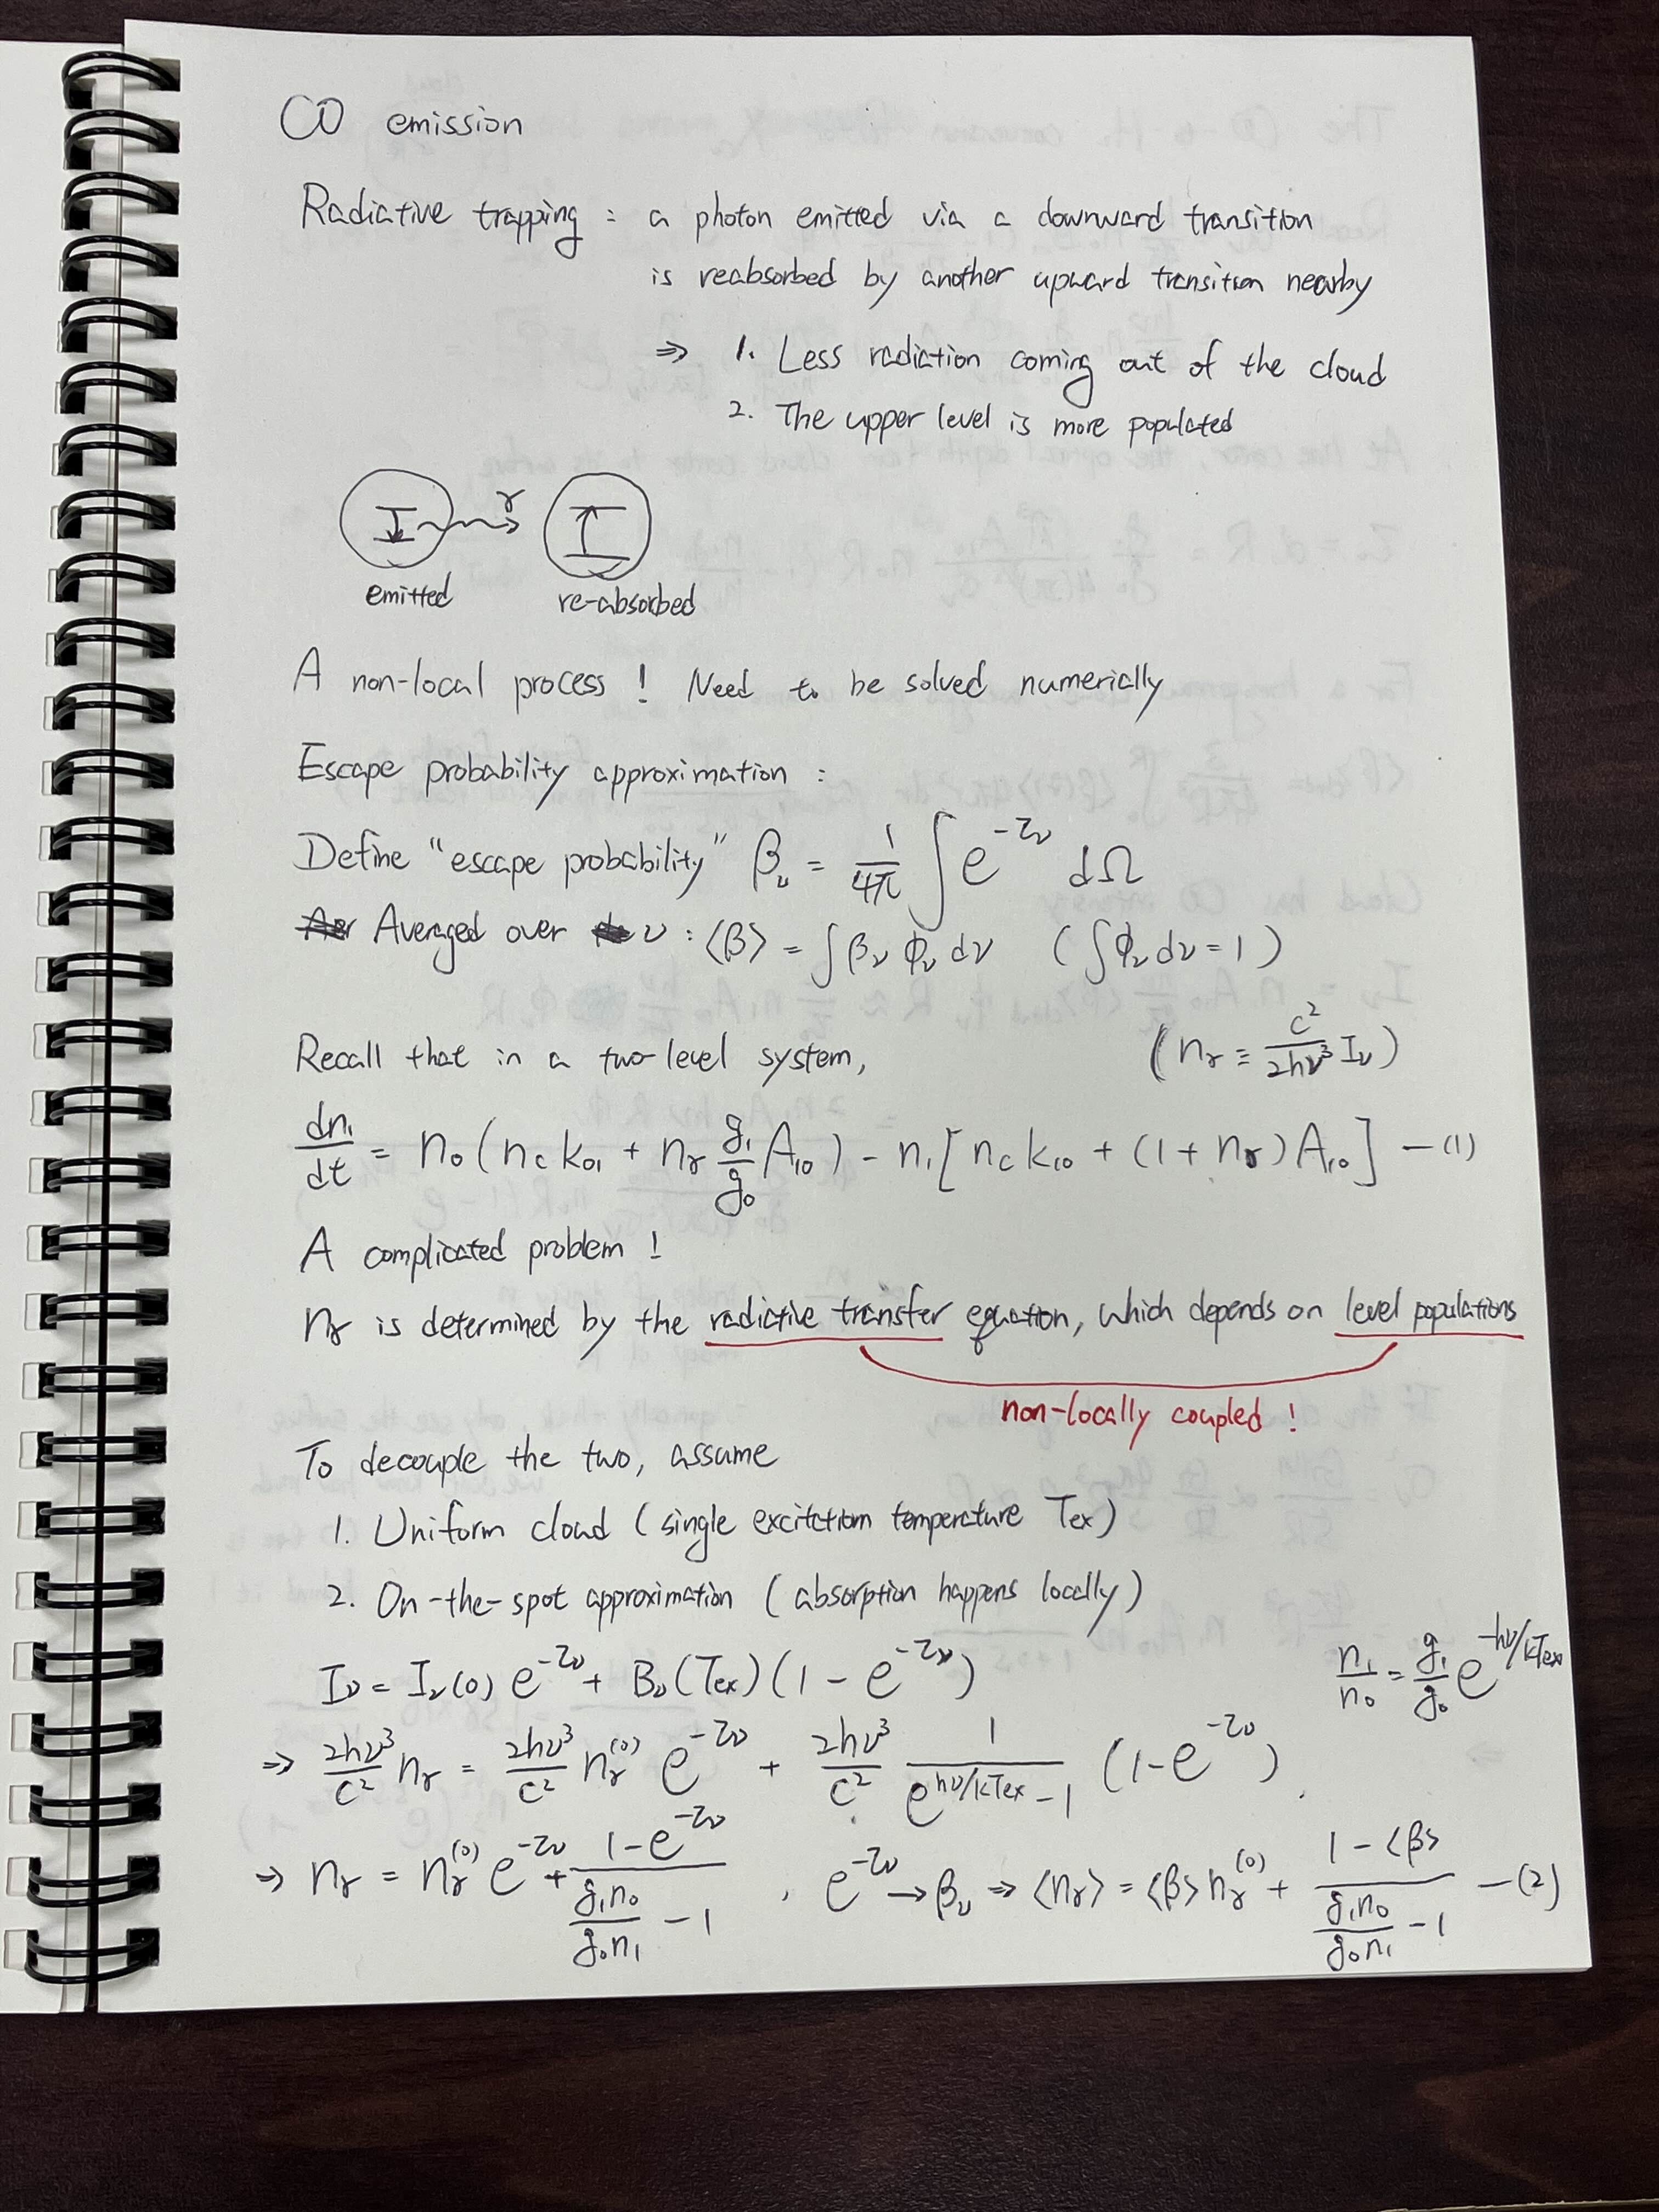 CO emission
Radiative trapping : a photon emitted via a downward transition
is reabsorbed by another upward transition nearby
⇒ 1. Less radiation coming out of the cloud
2. The upper level is more populated
γ
emitted re-absorbed
A non-local process ! Need to be solved numerically
Escape probability approximation :
Define "escape probability" β_ν = 1/4π ∫ e^{-τ_ν} dΩ
Averaged over ν : ⟨β⟩ = ∫ β_ν φ_ν dν ( ∫ φ_ν dν = 1 )
Recall that in a two-level system, ( n_γ ≡ c²/2hν³ I_ν )
dn₁/dt = n₀ ( n_c k₀₁ + n_γ g₁/g₀ A₁₀ ) - n₁ [ n_c k₁₀ + (1 + n_γ) A₁₀ ] — (1)
A complicated problem !
n_γ is determined by the radiative transfer equation, which depends on level populations
non-locally coupled !
To decouple the two, assume
1. Uniform cloud ( single excitation temperature Tex )
2. On-the-spot approximation ( absorption happens locally )
I_ν = I_ν(0) e^{-τ_ν} + B_ν(Tex) (1 - e^{-τ_ν}) n₁/n₀ = g₁/g₀ e^{-hν/kTex}
⇒ 2hν³/c² n_γ = 2hν³/c² n_γ^{(0)} e^{-τ_ν} + 2hν³/c² 1/(e^{hν/kTex} - 1) (1 - e^{-τ_ν})
⇒ n_γ = n_γ^{(0)} e^{-τ_ν} + (1 - e^{-τ_ν})/(g₁n₀/g₀n₁ - 1) , e^{-τ_ν} → β_ν ⇒ ⟨n_γ⟩ = ⟨β⟩ n_γ^{(0)} + (1 - ⟨β⟩)/(g₁n₀/g₀n₁ - 1) — (2)